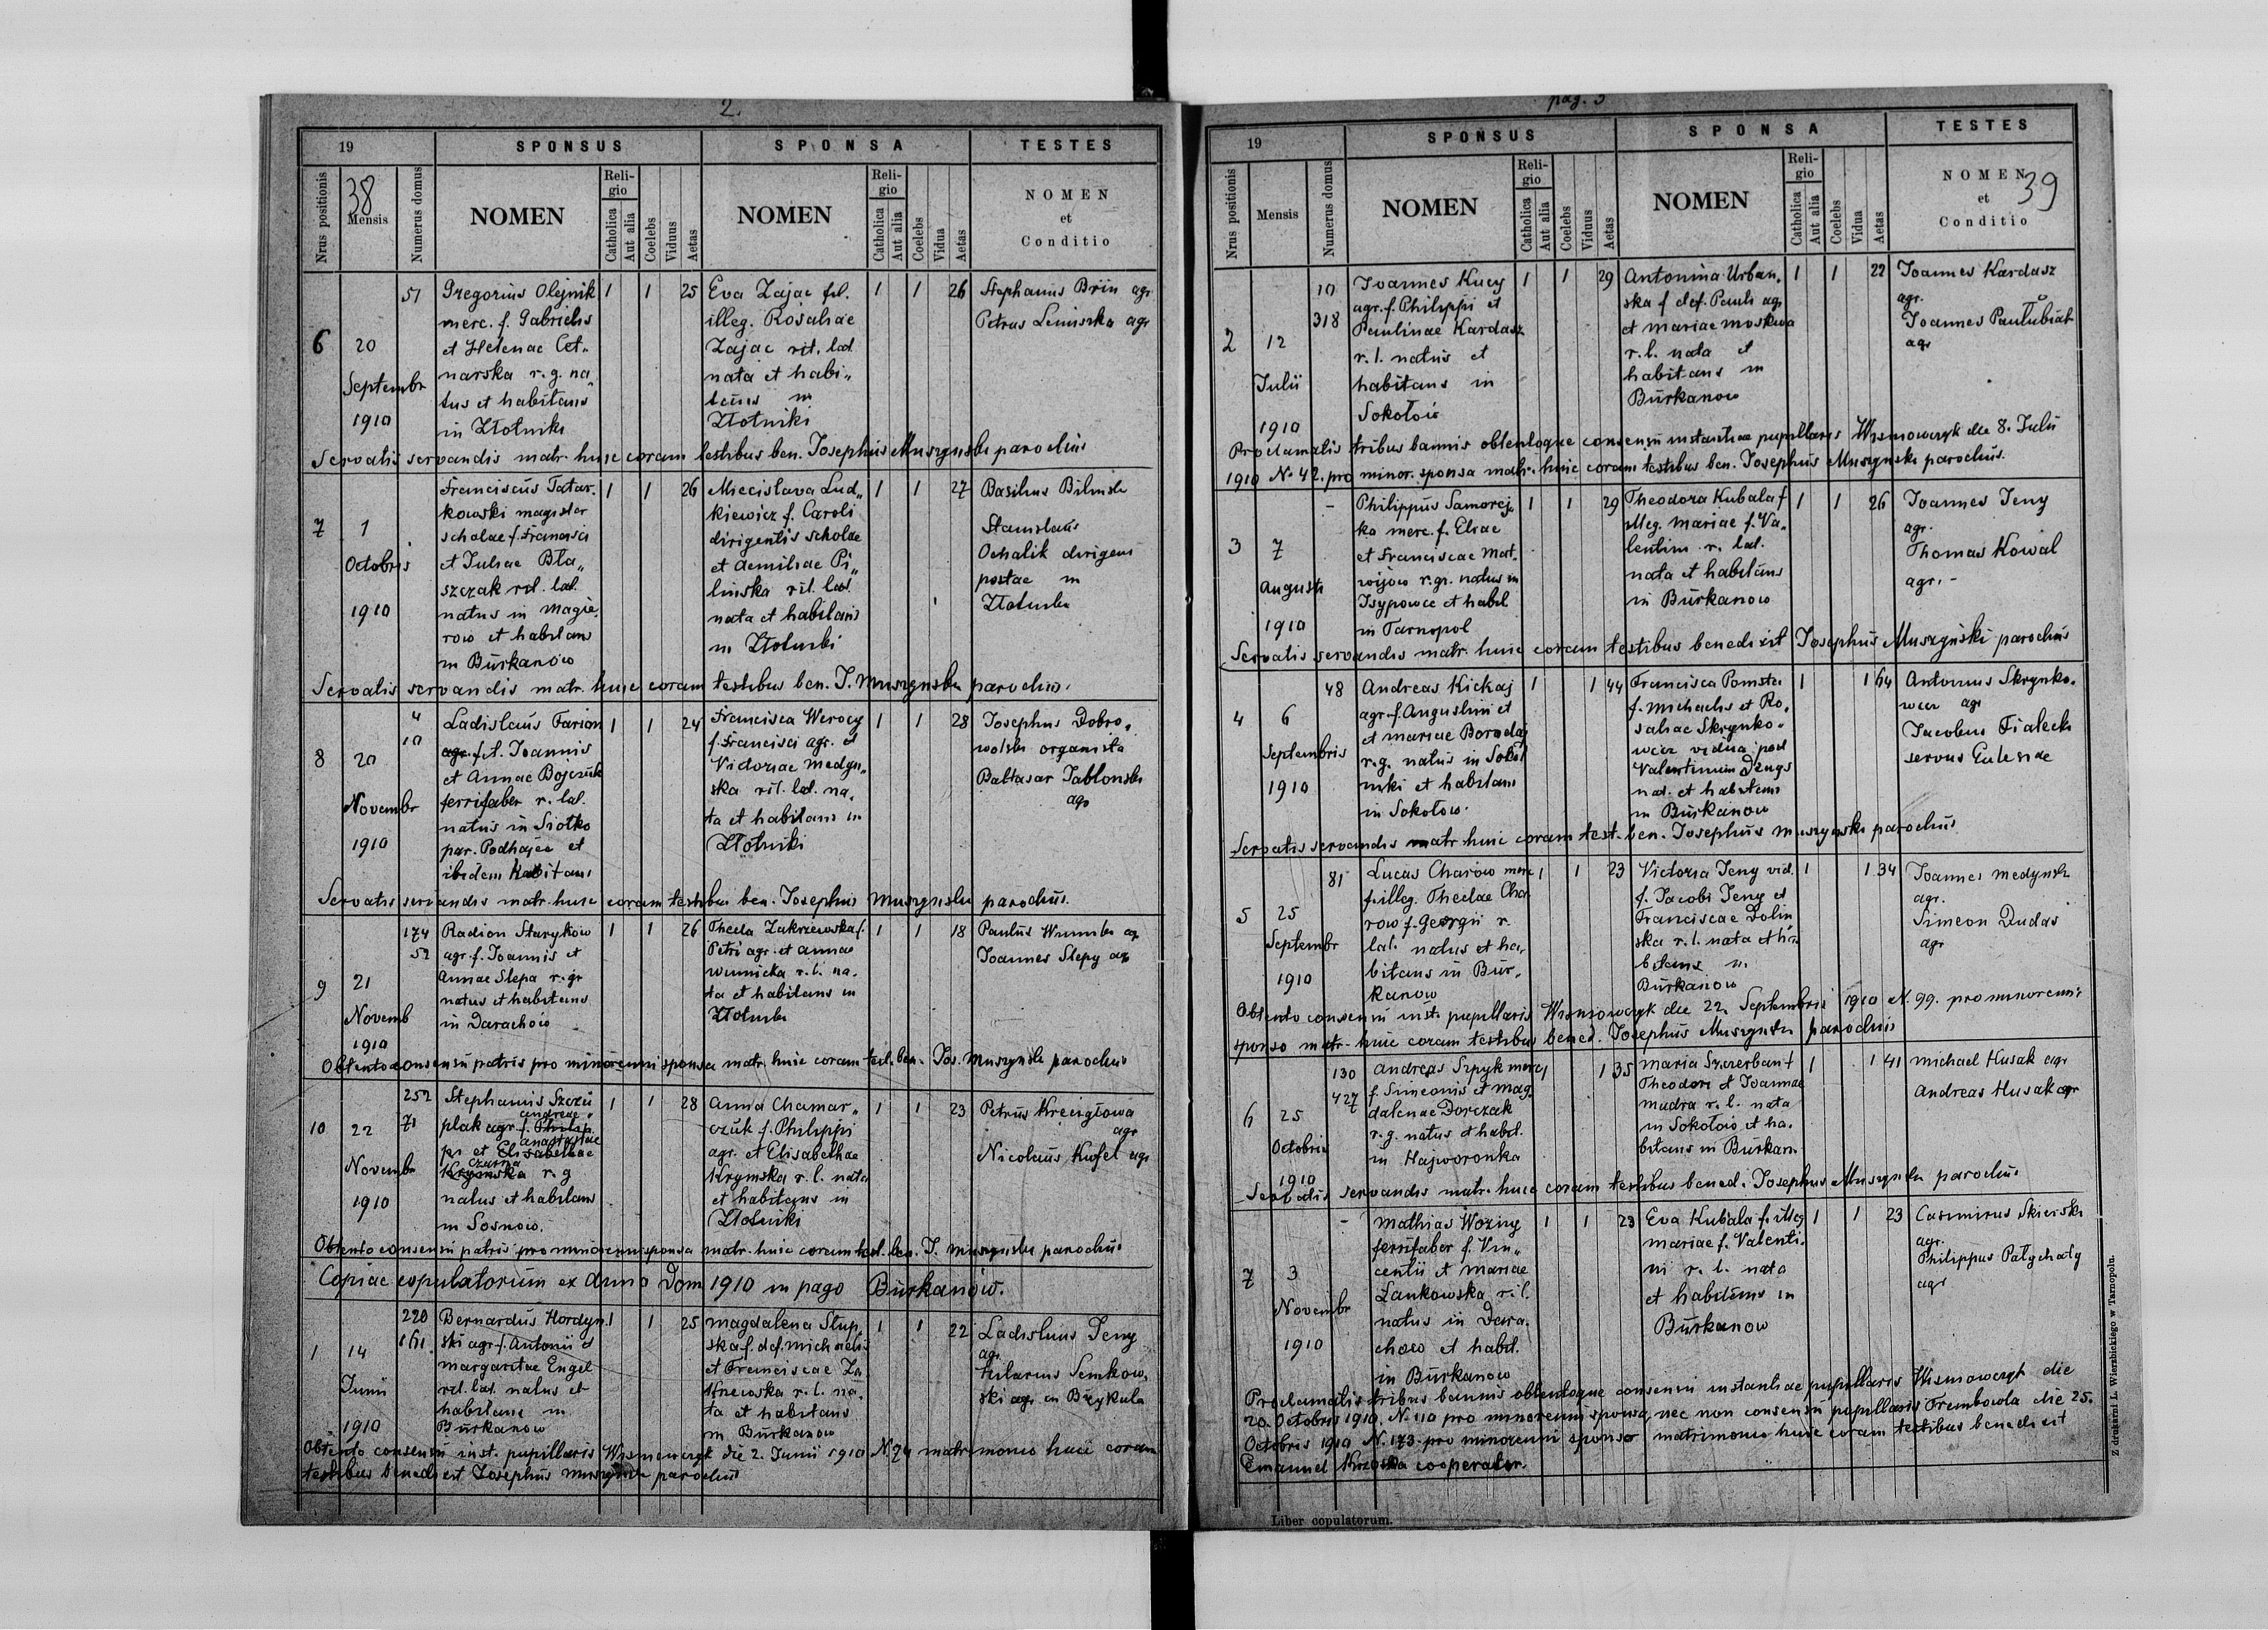 2.
19
SPONSUS
SPONSA
TESTES
Nrus positionis
38
Mensis
Numerus domus
NOMEN
Religio
Catholica
Aut alia
Coelebs
Viduus
Aetas
NOMEN
Religio
Catholica
Aut alia
Coelebs
Vidua
Aetas
NOMEN
et
Conditio
6
20
Septembr
1910
51
Gregorius Olejnik
merc. f. Gabrielis
et Helenae Cet„
narska r. g. na„
tus et habitans
in Złotniki
1 1 25
Eva Zając fil.
illeg. Rosaliae
Zając rit. lat.
nata et habi„
tans in
Złotniki
1 1 26
Stephanus Brin agr
Petrus Leniuszka agr
Servatis servandis matr. huic coram testibus ben. Josephus Muszyński parochus
7
1
Octobris
1910
Franciscus Tatar.
kowski magister
scholae f. Francisci
et Juliae Bła„
szczak rit. lat.
natus in Magie.
row et habitans
in Burkanów
1 1 26
Miecislava Lud„
kiewicz f. Caroli
dirigentis scholae
et Aemiliae Pi„
linska rit. lat.
nata et habitans
in Złotniki
1 1 27
Basilius Bilinski
Stanislaus
Ochalik dirigens
postae in
Złotniki
Servatis servandis matr. huic coram testibus ben. J. Muszyński parochus.
8
20
Novembr
1910
4
10
Ladislaus Farion
agr. f. Joannis
et Annae Bojczuk
ferrifaber r. lat.
natus in Siołko
par. Podhajce et
ibidem habitans
1 1 24
Francisca Werocy
f. Francisci agr. et
Victoriae Medyn„
ska rit. lat. na.
ta et habitans in
Złotniki
1 1 28
Josephus Dobro„
wolski organista
Baltasar Jabłonski
agr
Servatis servandis matr. huic coram testibus ben. Josephus Muszyński parochus.
9
21
Novemb
1910
174
52
Radion Starykow
agr. f. Joannis et
Annae Slepa r. gr
natus et habitans
in Darachow
1 1 26
Thecla Zakrzewska f.
Petri agr. et Annae
Winnicka r. l. na.
ta et habitans in
Złotniki
1 1 18
Paulus Winnicki agr
Joannes Slepy agr
Obtento consensu patris pro minorenni sponsa matr. huic coram test. ben. Jos. Muszyński parochus
10
22
Novembr
1910
252
71
Stephanus Szczu
plak agr. f. Philip
Andreae
pi et Elisabethae
Anastasiae
Krymska r. g
Czarna
natus et habitans
in Sosnow.
1 1 28
Anna Chamar„
czuk f. Philippi
agr. et Elisabethae
Krymska r. l. nata
et habitans in
Złotniki
1 1 23
Petrus Kreciglowa
agr
Nicolaus Kufel agr
Obtento consensu patris pro minorenni sponsa matr. huic coram test. ben. J. Muszyński parochus
Copiae copulatorum ex Anno Dom 1910 in pago Burkanów.
1
14
Junii
1910
220
161
Bernardus Hordyn
ski agr. f. Antonii et
Margaritae Engel
rit. lat. natus et
habitans in
Burkanow
1 1 25
Magdalena Stup
ska f. def. Michaelis
et Franciscae
r. l. na.
ta et habitans
in Burkanow
1 1 22
Ladislaus Jeny
agr.
Hilarius Semkow.
ski agr. in Brzykula
Obtento consensu inst. pupillaris Wiśniowczyk die 2. Junii 1910 N. 74 matrimonio huic coram
testibus benedixit Josephus Muszyński parochus
pag. 3
19
SPONSUS
SPONSA
TESTES
Nrus positionis
Mensis
Numerus domus
NOMEN
Religio
Catholica
Aut alia
Coelebs
Viduus
Aetas
NOMEN
Religio
Catholica
Aut alia
Coelebs
Vidua
Aetas
NOMEN
et
Conditio
39
2
12
Julii
1910
10
318
Joannes Kucy
agr. f. Philippi et
Paulinae Kardasz
r. l. natus et
habitans in
Sokołów
1 1 29
Antonina Urban„
ska f. def. Pauli agr
et Mariae Moskwa
r. l. nata et
habitans in
Burkanow
1 1 22
Joannes Kardasz
agr.
Joannes Paulubiak
agr
Proclamatis tribus bannis obtentoque consensu instantiae pupillaris Wiśniowczyk die 8. Julii
1910 N. 42. pro minor. sponsa matr. huic coram testibus ben. Josephus Muszyński parochus.
3
7
Augusti
1910
-
Philippus Samorej.
ko merc. f. Eliae
et Franciscae Mat.
wijow r. gr. natus in
Isypowce et habit
in Tarnopol
1 1 29
Theodora Kubala f
illeg. Mariae f. Va„
lentini r. lat.
nata et habitans
in Burkanow
1 1 26
Joannes Jeny
agr.
Thomas Kowal
agr. -
Servatis servandis matr. huic coram testibus benedixit Josephus Muszyński parochus
4
6
Septembris
1910
48
Andreas Kickaj
agr. f. Augustini et
et Mariae Borodaj
r. g. natus in Sobol
inski et habitans
in Sokołow.
1 1 44
Francisca Pomsta
f. Michaelis et Ro.
saliae Skrynko„
wicz vidua post
Valentinum Dengs
nat. et habitans
in Burkanow
1 1 64
Antonius Skrynko.
wicz agr
Jacobus Fialecki
servus Eulesiae
Servatis servandis matr. huic coram test. ben. Josephus Muszyński parochus
5
25
Septembr
1910
81
Lucas Charow merc
f. illeg. Theclae Cha
row f. Georgii r.
lat. natus et ha„
bitans in Bur„
kanow
1 1 23
Victoria Jeny vid.
f. Jacobi Jeny et
Franciscae Dolin
ska r. l. nata et ha
bitans in
Burkanow
1 1 34
Joannes Medynski
agr.
Simeon Dudas
agr
Obtento consensu inst. pupillaris Wiśniowczyk die 22. Septembris 1910 N. 99. pro minorenni
sponso matr. huic coram testibus bened. Josephus Muszyński parochus
6
25
Octobris
1910
130
427
Andreas Szpyk merc
f. Simeonis et Mag.
dalenae Dorczak
r. g. natus et habit.
in Hajworonka
1 1 35
Maria Szczerban f
Theodori et Joannae
Mudra r. l. nata
in Sokołow et ha.
bitans in Burkan
1 1 41
Michael Husak agr
Andreas Husak agr
Servatis servandis matr. huic coram testibus bened. Josephus Muszyński parochus
7
3
Novembr
1910
-
Mathias Wozny
ferrifaber f. Vin„
centii et Mariae
Lankowska r. l.
natus in Dara.
chow et habit.
in Burkanow
1 1 23
Eva Kubala f. illeg
Mariae f. Valenti.
ni r. l. nata
et habitans in
Burkanow
1 1 23
Casimirus Skierski
agr.
Philippus Patychaty
agr
Proclamatis tribus bannis obtentoque consensu instantiae pupillaris Wiśniowczyk die
20 Octobris 1910. N. 110 pro minorenni sponsa, nec non consensu pupillaris Trembowla die 25.
Octobris 1910 N. 173. pro minorenni sponso matrimonio huic coram testibus benedixit
Emanuel cooperator.
Liber copulatorum.
Z drukarni L. Wierzbickiego w Tarnopolu.